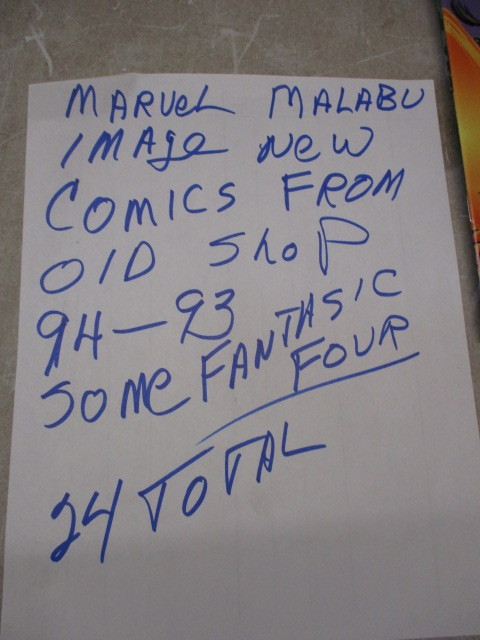 MARVEL MALABU
IMAge New
COMICS FROM
OlD SHoP
94-93
SOMe FANTASIC
FOUR
24 TOTAL